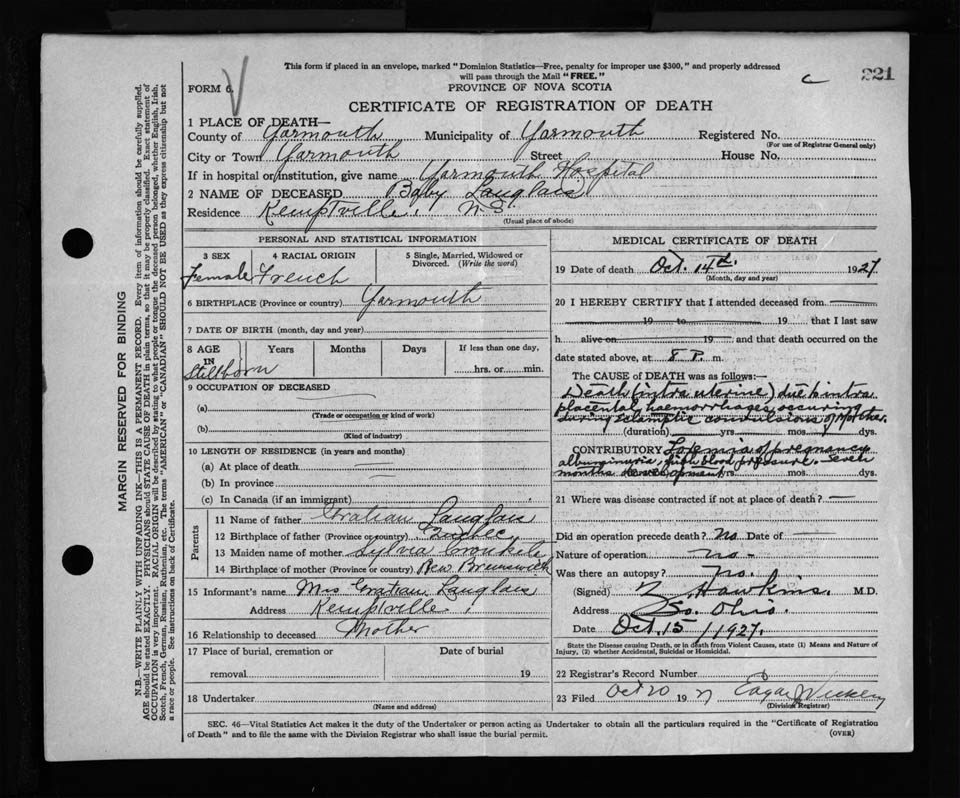 This form if placed in an envelope, marked "Dominion Statistics—Free, penalty for improper use $300," and properly addressed
will pass through the Mail "FREE."
FORM 6.
PROVINCE OF NOVA SCOTIA
C
221
CERTIFICATE OF REGISTRATION OF DEATH
1 PLACE OF DEATH—
County of Yarmouth Municipality of Yarmouth Registered No.
(For use of Registrar General only)
City or Town Yarmouth Street House No.
If in hospital or institution, give name Yarmouth Hospital
2 NAME OF DECEASED Baby Langlais
Residence Kemptville, N.S.
(Usual place of abode)
PERSONAL AND STATISTICAL INFORMATION
3 SEX 4 RACIAL ORIGIN 5 Single, Married, Widowed or
Divorced. (Write the word)
Female French
6 BIRTHPLACE (Province or country) Yarmouth
7 DATE OF BIRTH (month, day and year)
8 AGE Years Months Days If less than one day,
IN
Stillborn hrs. or min.
9 OCCUPATION OF DECEASED
(a)
(Trade or occupation or kind of work)
(b)
(Kind of industry)
10 LENGTH OF RESIDENCE (in years and months)
(a) At place of death
(b) In province
(c) In Canada (if an immigrant)
Parents
11 Name of father Gratian Langlais
12 Birthplace of father (Province or country) Quebec
13 Maiden name of mother Sylvia
14 Birthplace of mother (Province or country) New Brunswick
15 Informant's name Mrs Gratian Langlais
Address Kemptville
16 Relationship to deceased Mother
17 Place of burial, cremation or Date of burial
removal 19
18 Undertaker
(Name and address)
MEDICAL CERTIFICATE OF DEATH
19 Date of death Oct. 14th 1927.
(Month, day and year)
20 I HEREBY CERTIFY that I attended deceased from
19 to 19 that I last saw
h alive on 19 and that death occurred on the
date stated above, at 8 P. m.
The CAUSE of DEATH was as follows:—
Death (intra uterine) due to intra
placental haemorrhages occuring
during eclamptic convulsions of Mother.
(duration) yrs. mos. dys.
CONTRIBUTORY of pregnancy
albuminuria, high blood pressure. Seven
months development yrs. mos. dys.
21 Where was disease contracted if not at place of death?
Did an operation precede death? No Date of
Nature of operation no -
Was there an autopsy? No.
(Signed) Z. Hawkins. M.D.
Address So. Ohio.
Date Oct. 15/1927.
State the Disease causing Death, or in death from Violent Causes, state (1) Means and Nature of
Injury, (2) whether Accidental, Suicidal or Homicidal.
22 Registrar's Record Number
23 Filed Oct 20 1927 Edgar
(Division Registrar)
SEC. 46—Vital Statistics Act makes it the duty of the Undertaker or person acting as Undertaker to obtain all the particulars required in the "Certificate of Registration
of Death" and to file the same with the Division Registrar who shall issue the burial permit. (OVER)
MARGIN RESERVED FOR BINDING
N.B.—WRITE PLAINLY WITH UNFADING INK—THIS IS A PERMANENT RECORD. Every item of information should be carefully supplied.
AGE should be stated EXACTLY. PHYSICIANS should STATE CAUSE OF DEATH in plain terms, so that it may be properly classified. Exact statement of
OCCUPATION is very important. RACIAL ORIGIN will be described by stating to what people or tongue the deceased person belonged, whether English, Irish,
Scotch, French, German, Russian, Ruthenian, etc. The terms "AMERICAN" or "CANADIAN" SHOULD NOT BE USED as they express citizenship but not
a race or people. See instructions on back of Certificate.